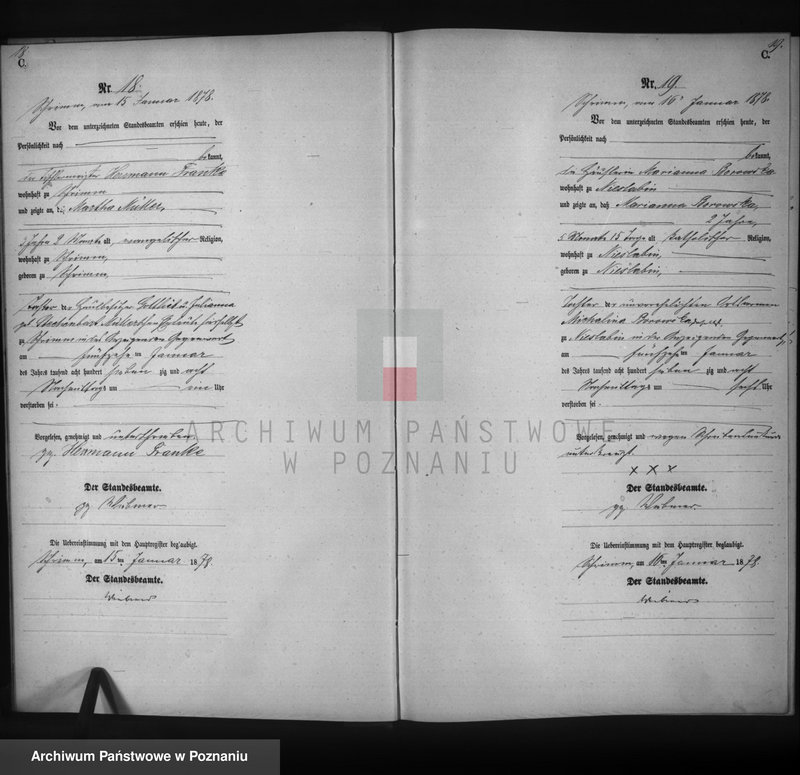 18.
C.
Nr. 18.
Schrimm, am 15 Januar 1878.
Vor dem unterzeichneten Standesbeamten erschien heute, der
Persönlichkeit nach
bekannt,
Hermann Franke
wohnhaft zu Schrimm
und zeigte an, d. Martha Müller,
3 Jahre 2 Monate alt, evangelischer Religion,
wohnhaft zu Schrimm,
geboren zu Schrimm,
Tochter der Gottlieb u Julianna
zu Schrimm in des Anzeigenden Gegenwart
am fünfzehn Januar
des Jahres tausend acht hundert sieben zig und acht
Nachmittags um ein Uhr
verstorben sei.
Vorgelesen, genehmigt und unterschrieben
gz. Hermann Franke
Der Standesbeamte.
gz
Die Uebereinstimmung mit dem Hauptregister beglaubigt.
Schrimm, am 15 ten Januar 1878.
Der Standesbeamte.
19.
C.
Nr. 19.
Schrimm, am 16 Januar 1878.
Vor dem unterzeichneten Standesbeamten erschien heute, der
Persönlichkeit nach
bekannt,
die Häuslerin Marianna Borowska
wohnhaft zu Niesłabin
und zeigte an, daß Marianna Borowska,
2 Jahre,
5 Monate 15 Tage alt katholischer Religion,
wohnhaft zu Niesłabin,
geboren zu Niesłabin,
Tochter der unverehelichten
Michalina Borowska
zu Niesłabin in der Anzeigenden Gegenwart
am fünfzehn Januar
des Jahres tausend acht hundert sieben zig und acht
Nachmittags um sechs Uhr
verstorben sei.
Vorgelesen, genehmigt und wegen
unterkreuzt
x x x
Der Standesbeamte.
gz
Die Uebereinstimmung mit dem Hauptregister beglaubigt.
Schrimm, am 16 ten Januar 1878.
Der Standesbeamte.
ARCHIWUM PAŃSTWOWE
W POZNANIU
Archiwum Państwowe w Poznaniu